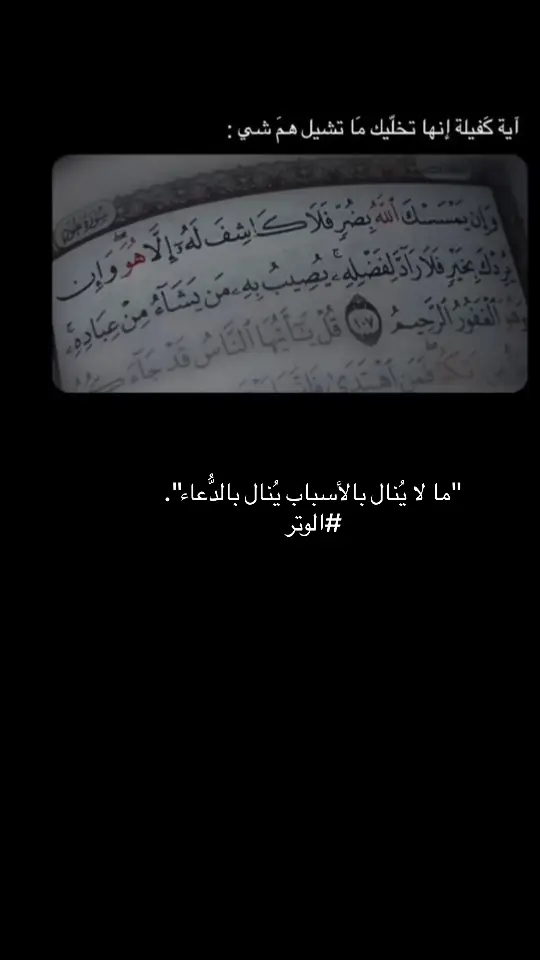 آية كَفيلة إنها تخلّيك مَا تشيل همَ شي :
سُورَةُ يُونُسَ
وَإِن يَمْسَسْكَ ٱللَّهُ بِضُرٍّ فَلَا كَاشِفَ لَهُۥٓ إِلَّا هُوَۖ وَإِن
يُرِدْكَ بِخَيْرٍ فَلَا رَآدَّ لِفَضْلِهِۦۚ يُصِيبُ بِهِۦ مَن يَشَآءُ مِنْ عِبَادِهِۦۚ
وَهُوَ ٱلْغَفُورُ ٱلرَّحِيمُ ١٠٧ قُلْ يَٰٓأَيُّهَا ٱلنَّاسُ قَدْ جَآءَكُمُ
فَمَنِ ٱهْتَدَىٰ فَإِنَّمَا
"ما لا يُنال بالأسباب يُنال بالدُّعاء".
#الوتر